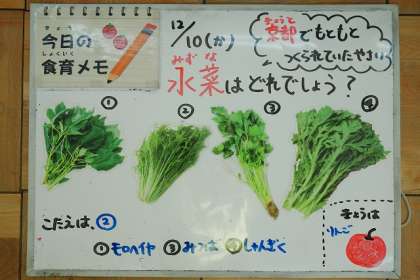 きょう
今日の
しょくいく
食育メモ
12/10(か)
きょうと
京都でもともと
つくられていたやさい
みずな
水菜はどれでしょう？
① ② ③ ④
こたえは、②
①モロヘイヤ ③みつば ④しゅんぎく
きょうは
りんご